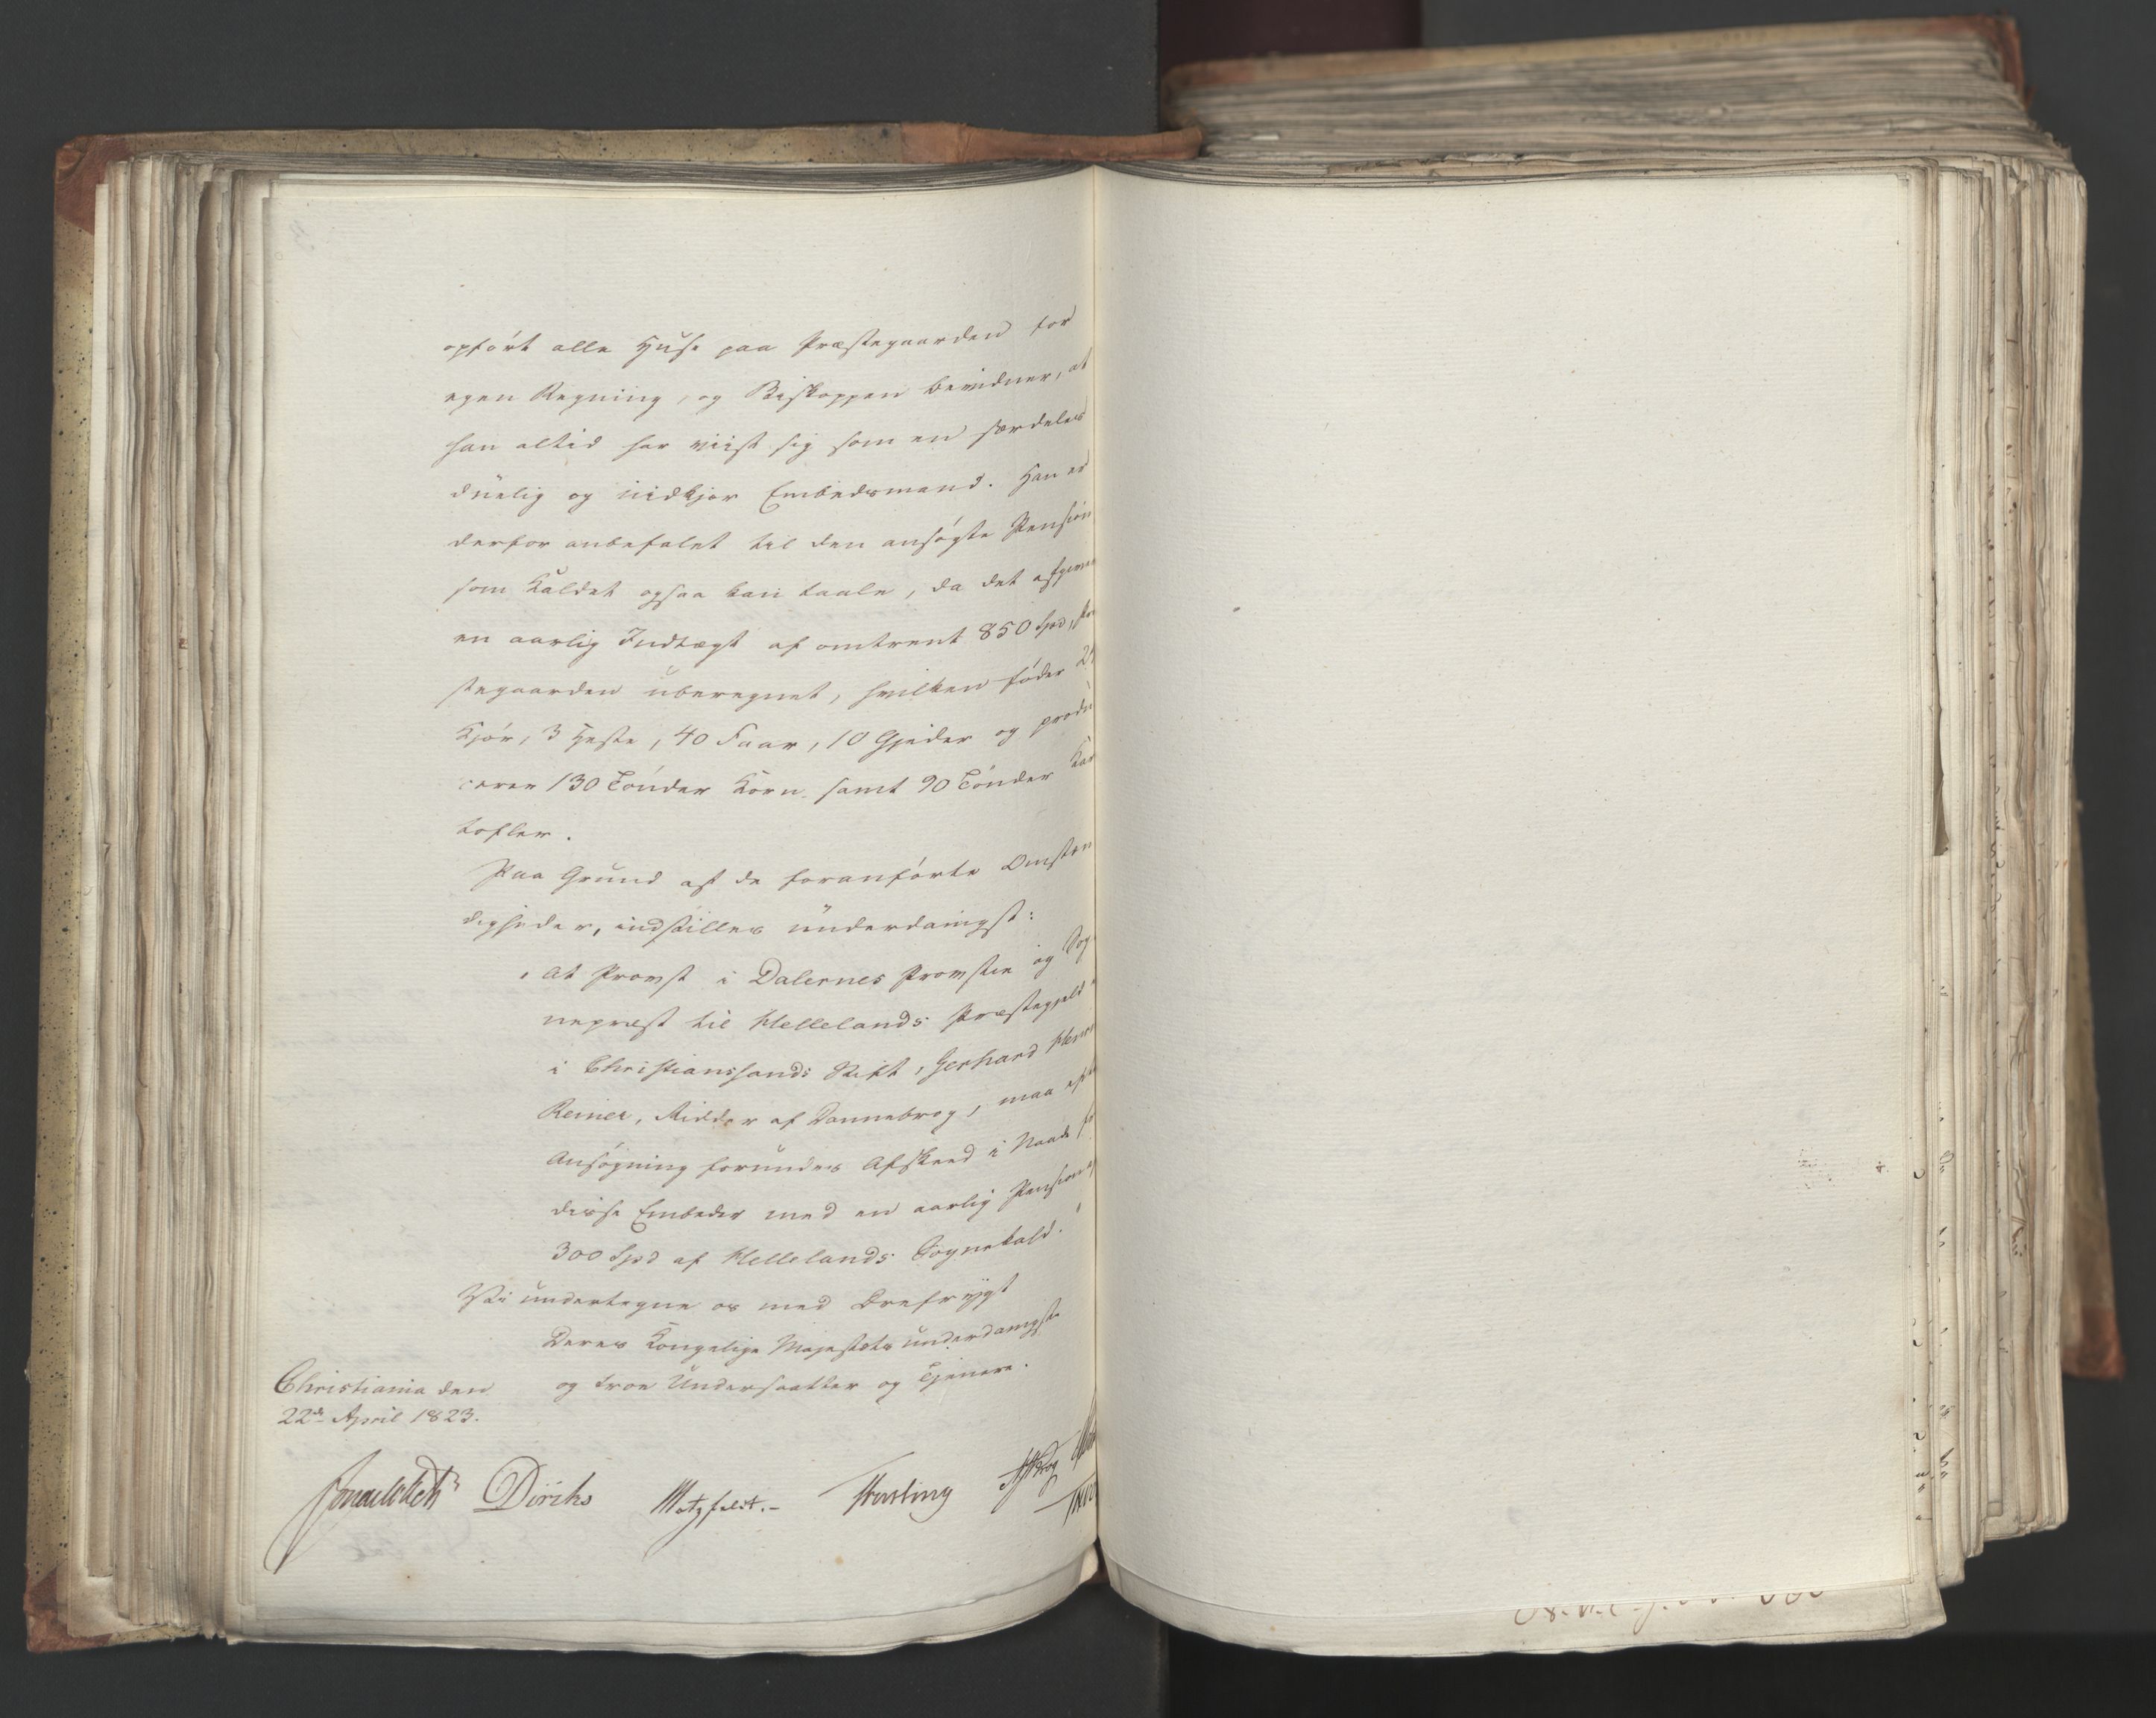 opført alle Huse paa Præstegaarden for
egen Regning, og Biskoppen bevidner, at
han altid har viist sig som en særdeles
duelig og nidkjær Embedsmand. Han er
derfor anbefalet til den ansøgte Pension
som Kaldet ogsaa kan taale, da det afgiver
en aarlig Indtægt af omtrent 850 Spd, Præ
stegaarden uberegnet, hvilken føder
Kjør, 3 Heste, 40 Faar, 10 Gjeder og produ
cerer 130 Tønder Korn samt 90 Tønder Kar
tofler.
Paa Grund af de foranførte Omstæn
digheder, indstilles underdanigst:
at Provst i Dalernes Provstie og Sog
nepræst til Hellelands Præstegjeld
i Christianssands Stift, Gerhard
Reiner, Ridder af Dannebrog, maa efter
Ansøgning forundes Afskeed i Naade fra
disse Embeder med en aarlig Pension af
300 Spd af Hellelands Sognekald.
Vi undertegne os med Ærefrygt
Deres Kongelige Majestæts underdanigste
og troe Undersaatter og Tjenere.
Christiania den
22de April 1823.
Diriks Motzfeldt.- Krog